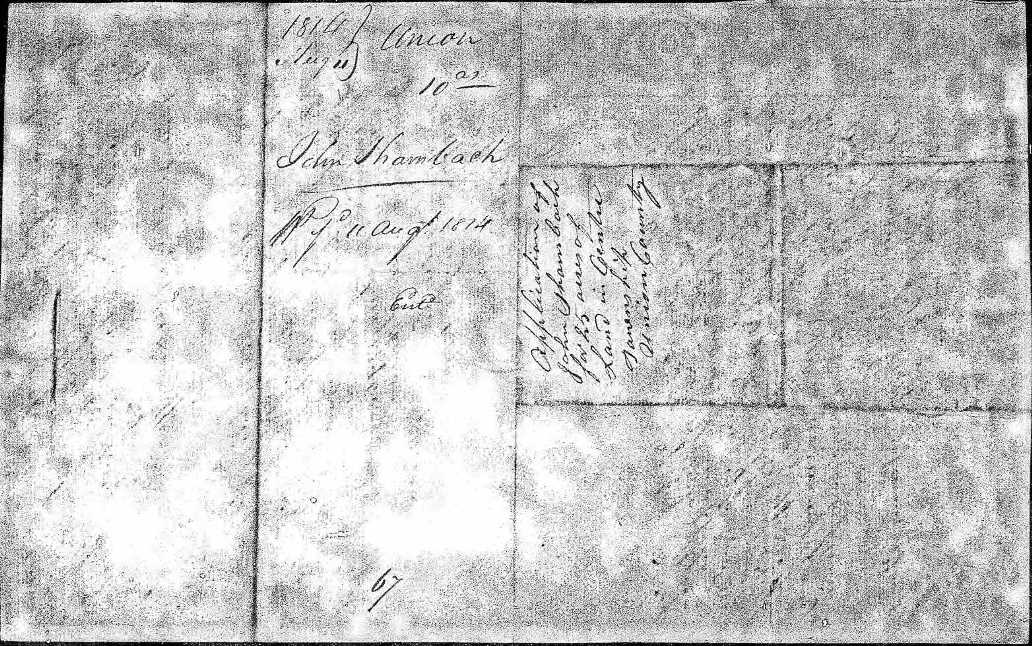 1814
Augt 11
Union
10 as
John Shambach
Wt gd 11 Augt 1814
Entd
67
Application of
John Shambach
for 15 acres of
Land in Centre
Township
Union County